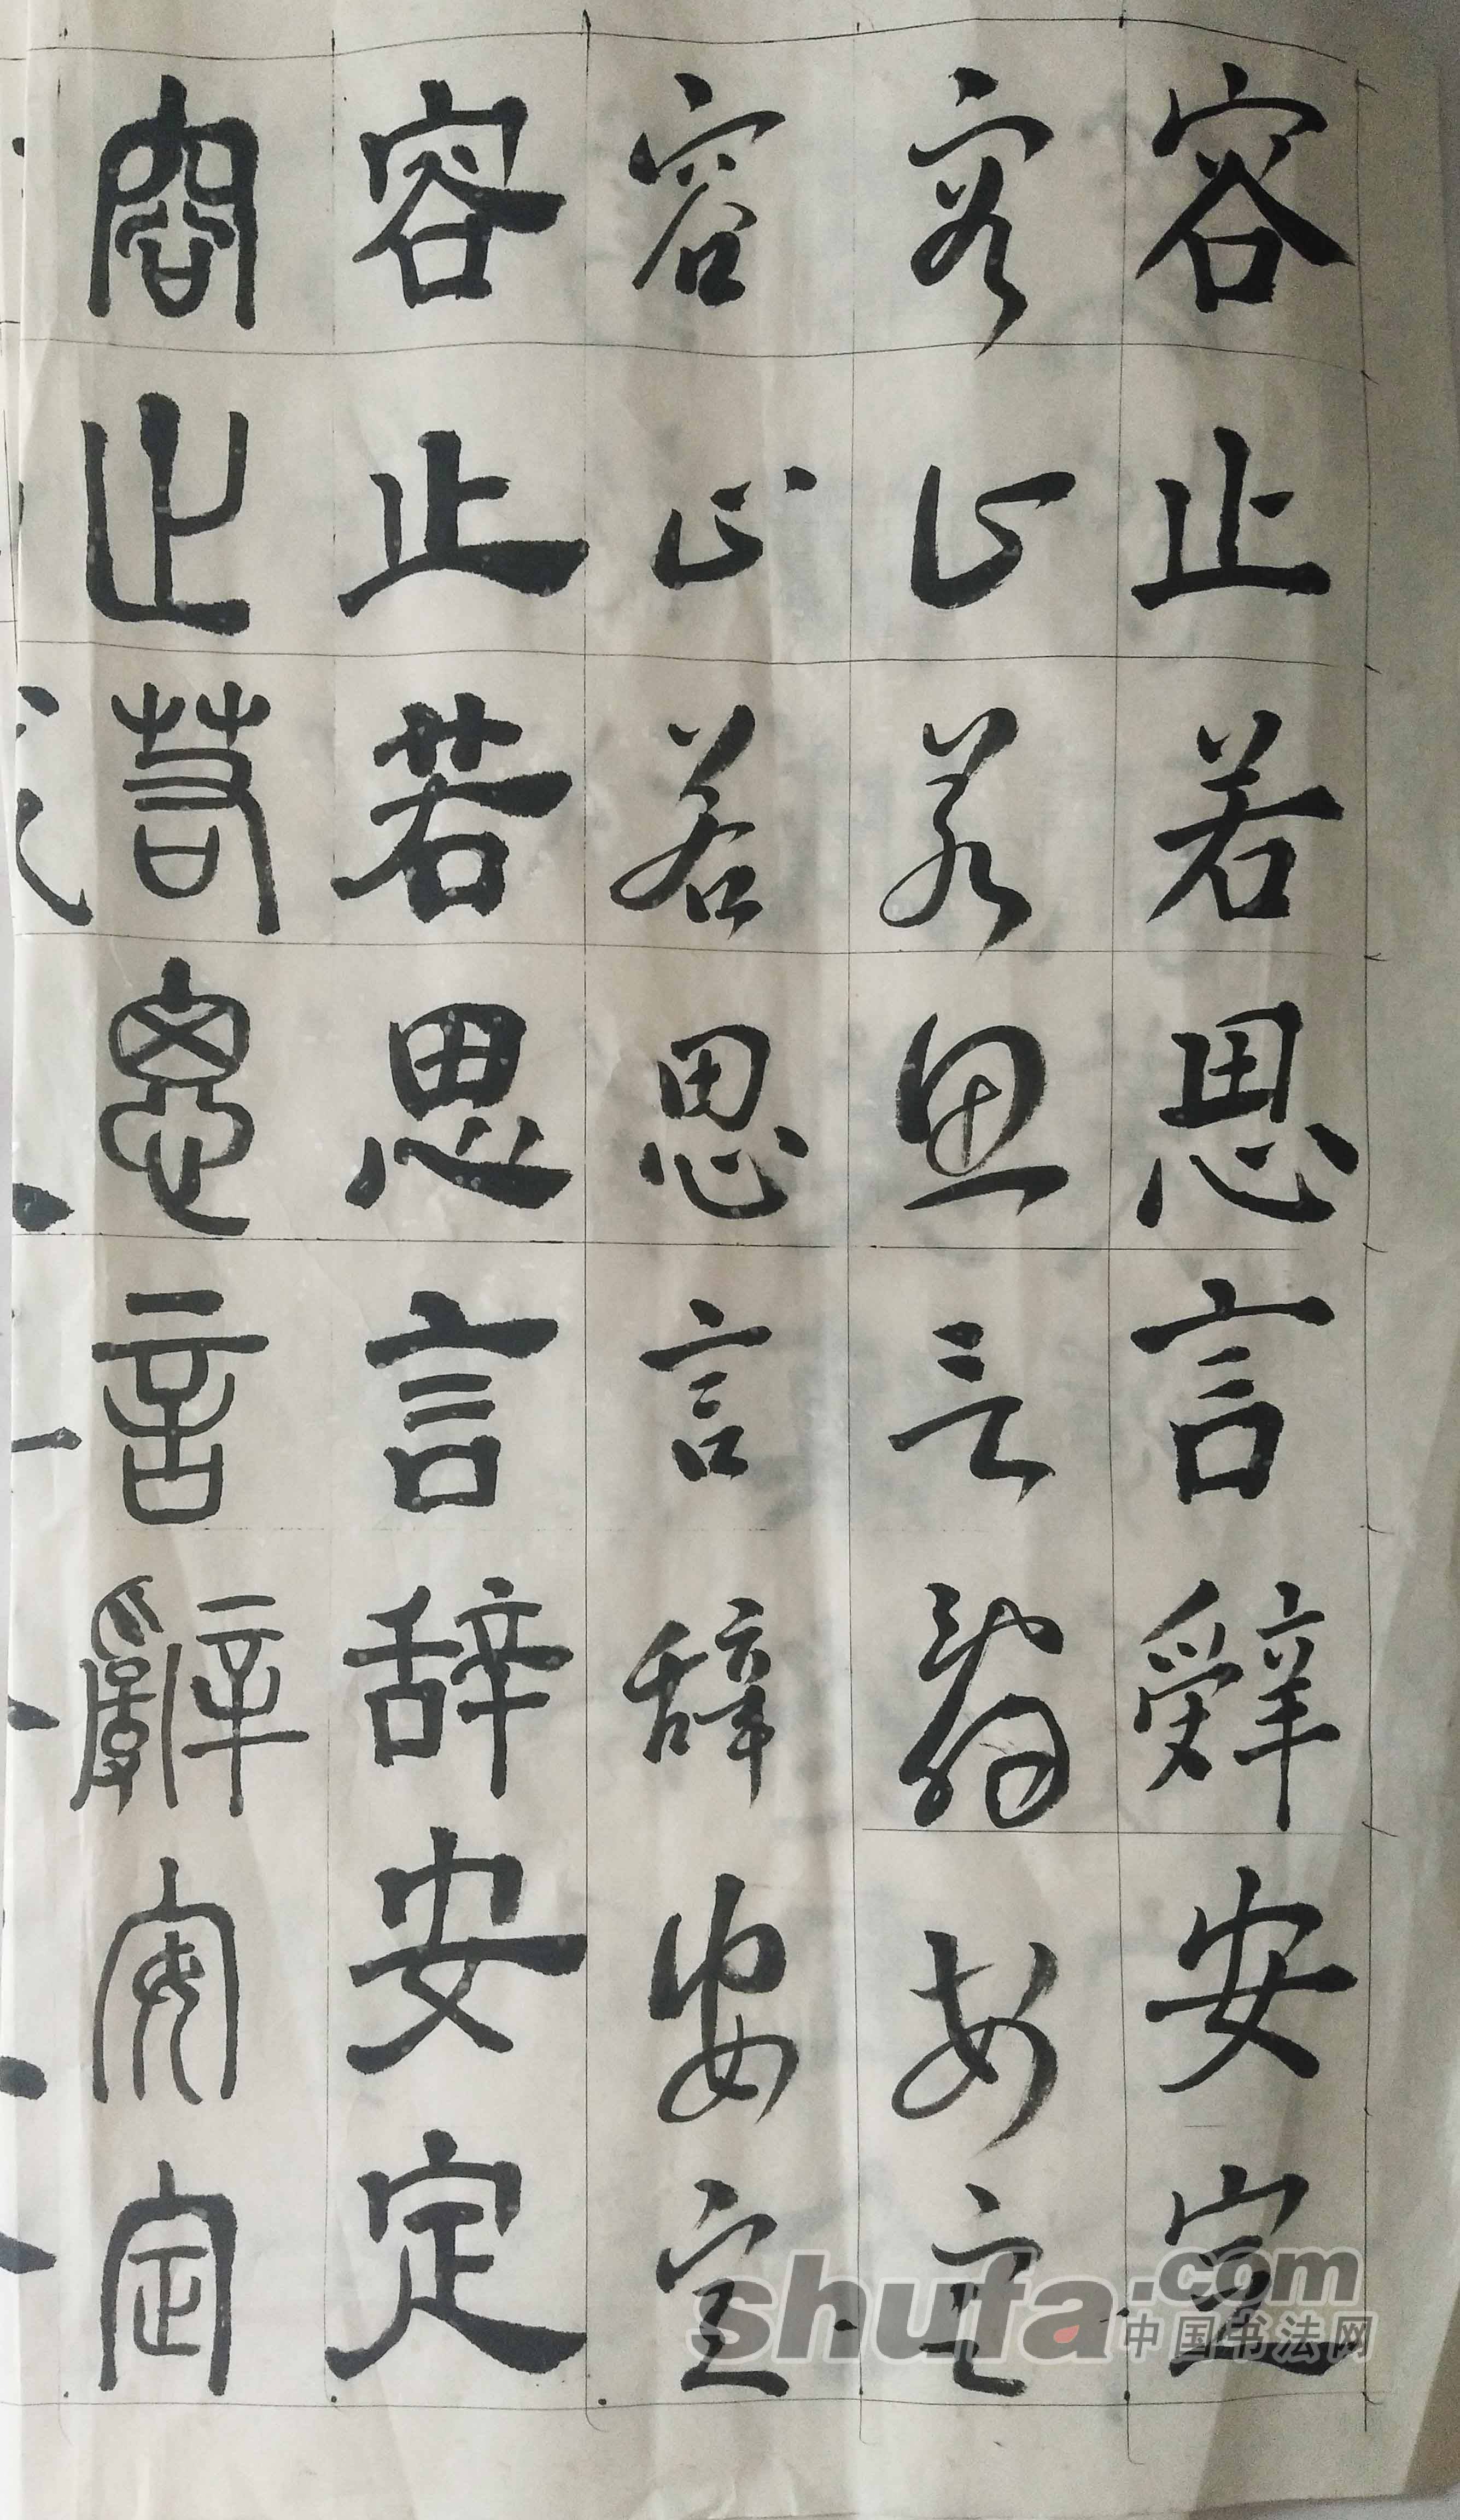 容止若思言辭安定
容止若思言辞安定
容止若思言辞安定
容止若思言辞安定
容止若思言辭安定
shufa.com
中国书法网